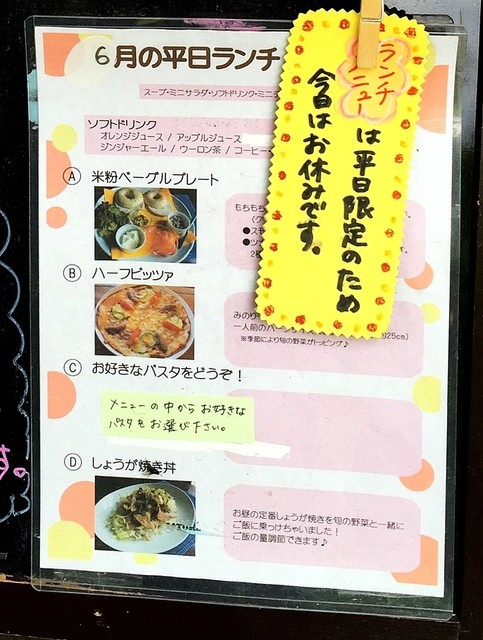 6月の平日ランチ
スープ・ミニサラダ・ソフトドリンク・ミニデ
ソフトドリンク
オレンジジュース / アップルジュース
ジンジャーエール / ウーロン茶 / コーヒー
Ⓐ 米粉ベーグルプレート
もちもち
●ス
●ツ
Ⓑ ハーフピッツァ
みのり
一人前のハー
約25cm)
※季節により旬の野菜がトッピング♪
Ⓒ お好きなパスタをどうぞ！
メニューの中からお好きな
パスタをお選び下さい。
Ⓓ しょうが焼き丼
お昼の定番しょうが焼きを旬の野菜と一緒に
ご飯に乗っけちゃいました！
ご飯の量調節できます♪
ランチ
メニューは平日限定のため
今日はお休みです。
す。